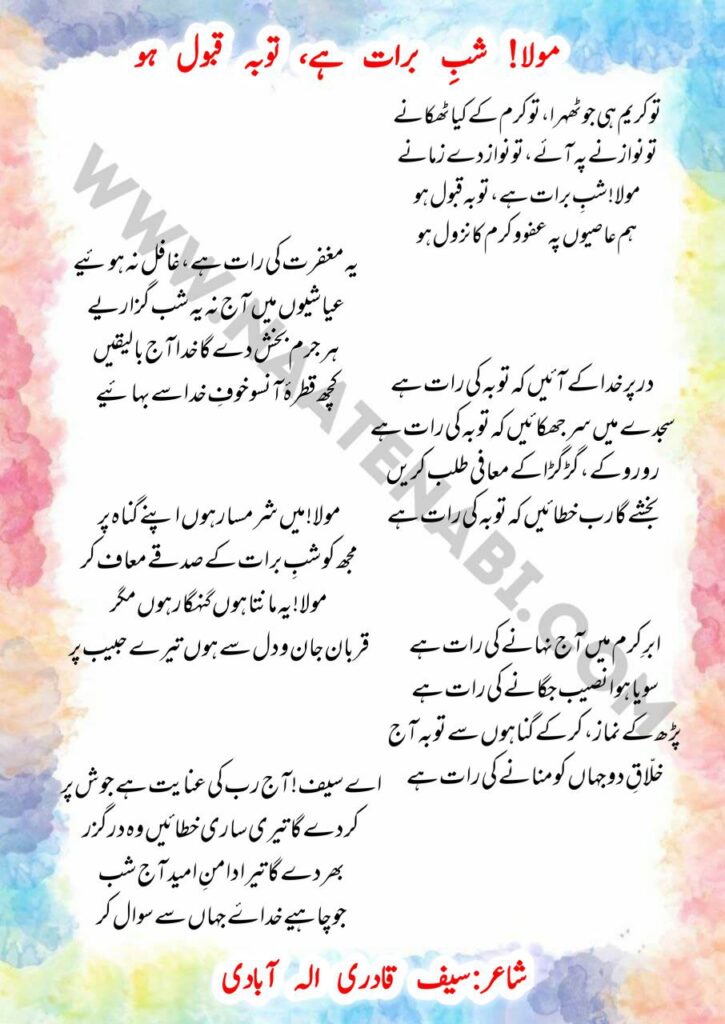 مولا! شبِ برات ہے، توبہ قبول ہو
تو کریم ہی جو ٹھہرا، تو کرم کے کیا ٹھکانے
تو نوازنے پہ آئے، تو نواز دے زمانے
مولا! شبِ برات ہے، توبہ قبول ہو
ہم عاصیوں پہ عفو و کرم کا نزول ہو
یہ مغفرت کی رات ہے، غافل نہ ہوئیے
عیاشیوں میں آج نہ یہ شب گزاریے
ہر جرم بخش دے گا خدا آج بالیقیں
کچھ قطرۂ آنسو خوفِ خدا سے بہائیے
در پر خدا کے آئیں کہ توبہ کی رات ہے
سجدے میں سر جھکائیں کہ توبہ کی رات ہے
رو رو کے، گڑگڑا کے معافی طلب کریں
بخشے گا رب خطائیں کہ توبہ کی رات ہے
مولا! میں شرمسار ہوں اپنے گناہ پر
مجھ کو شبِ برات کے صدقے معاف کر
مولا! یہ مانتا ہوں گنہگار ہوں مگر
قربان جان و دل سے ہوں تیرے حبیب پر
ابرِ کرم میں آج نہانے کی رات ہے
سویا ہوا نصیب جگانے کی رات ہے
پڑھ کے نماز، کر کے گناہوں سے توبہ آج
خلّاقِ دو جہاں کو منانے کی رات ہے
اے سیف! آج رب کی عنایت ہے جوش پر
کر دے گا تیری ساری خطائیں وہ درگزر
بھر دے گا تیرا دامنِ امید آج شب
جو چاہیے خدائے جہاں سے سوال کر
شاعر: سیف قادری الہ آبادی
WWW.NAATENABI.COM